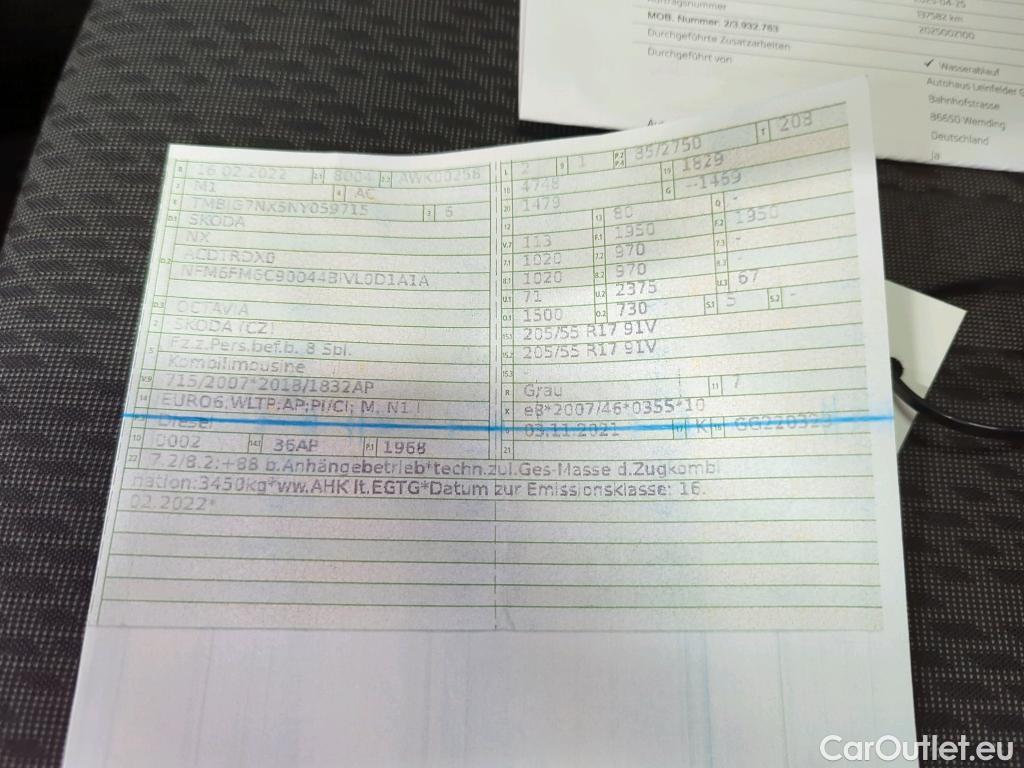 2025-04-25
Auftragsnummer
137582 km
MOB. Nummer: 2/3.932.763
2025002100
Durchgeführte Zusatzarbeiten
Durchgeführt von
✓ Wasserablauf
Autohaus Leinfelder G
Bahnhofstrasse
86650 Wemding
Deutschland
ja
B 16.02.2022 2.1 8004 2.2 AWK00258
J M1 4 AC
E TMBJG7NX5NY059715 3 6
D.1 SKODA
NX
D.2 ACDTRDX0
NFM6FM6C90044BJVL0D1A1A
D.3 OCTAVIA
2 SKODA (CZ)
5 Fz.z.Pers.bef.b. 8 Spl.
Kombilimousine
V.9 715/2007*2018/1832AP
14 EURO6;WLTP;AP;PI/CI; M, N1 I
Diesel
10 0002 14.1 36AP P.1 1968
L 2 9 1 P.2 P.4 85/2750 T 208
18 4748 19 1829
20 1479 G --1469
12 - 13 80 Q -
V.7 113 F.1 1950 F.2 1950
7.1 1020 7.2 970 7.3 -
8.1 1020 8.2 970 8.3 -
U.1 71 U.2 2375 U.3 67
O.1 1500 O.2 730 S.1 5 S.2 -
15.1 205/55 R17 91V
15.2 205/55 R17 91V
15.3 -
R Grau 11 7
K e8*2007/46*0355*10
6 03.11.2021 17 K 16 GG220329
21
22 7.2/8.2:+88 b.Anhängebetrieb*techn.zul.Ges-Masse d.Zugkombi
nation:3450kg*ww.AHK lt.EGTG*Datum zur Emissionsklasse: 16.
02.2022*
CarOutlet.eu